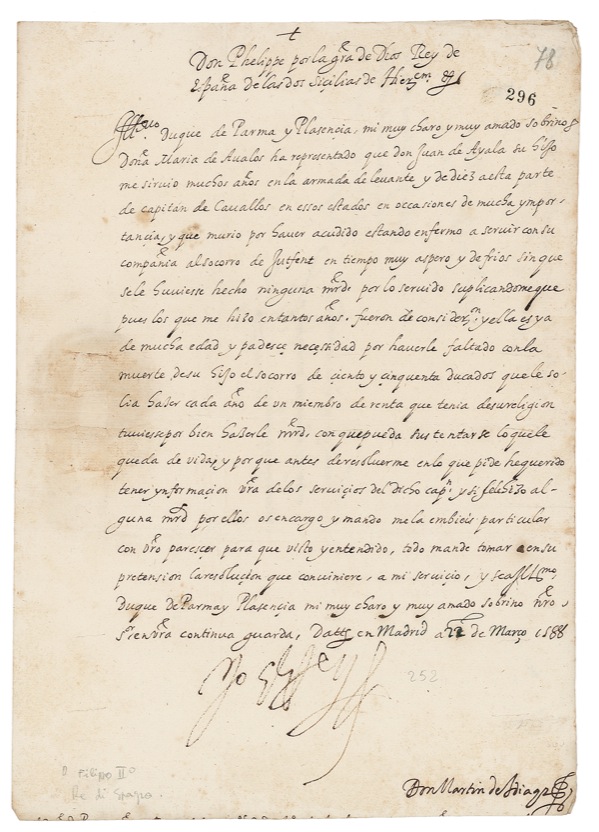 +
78
Don Phelippe por la gr̃a de Dios Rey de
España de las dos Sicilias de Hierᵉᵐ
296
Illᵐᵒ Duque de Parma y Plasençia, mi muy charo y muy amado sobrino
Doña Maria de Aualos ha representado que don Juan de Ayala su hijo
me siruio muchos años en la armada de leuante y de diez a esta parte
de capitán de Cauallos en essos estados en occasiones de mucha ympor-
tancia, y que murio por hauer acudido estando enfermo a seruir con su
compañia al socorro de en tiempo muy aspero y de frios sin que
se le huuiesse hecho ninguna mr̃d por lo seruido suplicandome que
pues los que me hizo en tantos años. fueron de considerᵒⁿ. y ella es ya
de mucha edad y padesce necessidad por hauerle faltado con la
muerte de su hijo el socorro de ciento y cinquenta ducados que le so-
lia hazer cada año de vn miembro de renta que tenia de su religion
tuuiesse por bien hazerle mr̃d, con que pueda sustentarse lo que le
queda de vida, y porque antes de resoluerme en lo que pide he querido
tener ynformacion vr̃a de los seruicios del dicho capⁿ. y si se le hizo al-
guna mr̃d por ellos os encargo y mando me la embieis particular
con vr̃o parescer para que visto y entendido, todo mande tomar en su
pretension la resolucion que conuiniere, a mi seruicio, y sea Illᵐᵒ,
Duque de Parma y Plasençia mi muy charo y muy amado sobrino nr̃o
Sʳ en vr̃a continua guarda, Datt̃ en Madrid a de Março 1588
Yo el Rey
252
D Filippo IIº
Re di Spagna.
Don Martin de Idiaq̃z